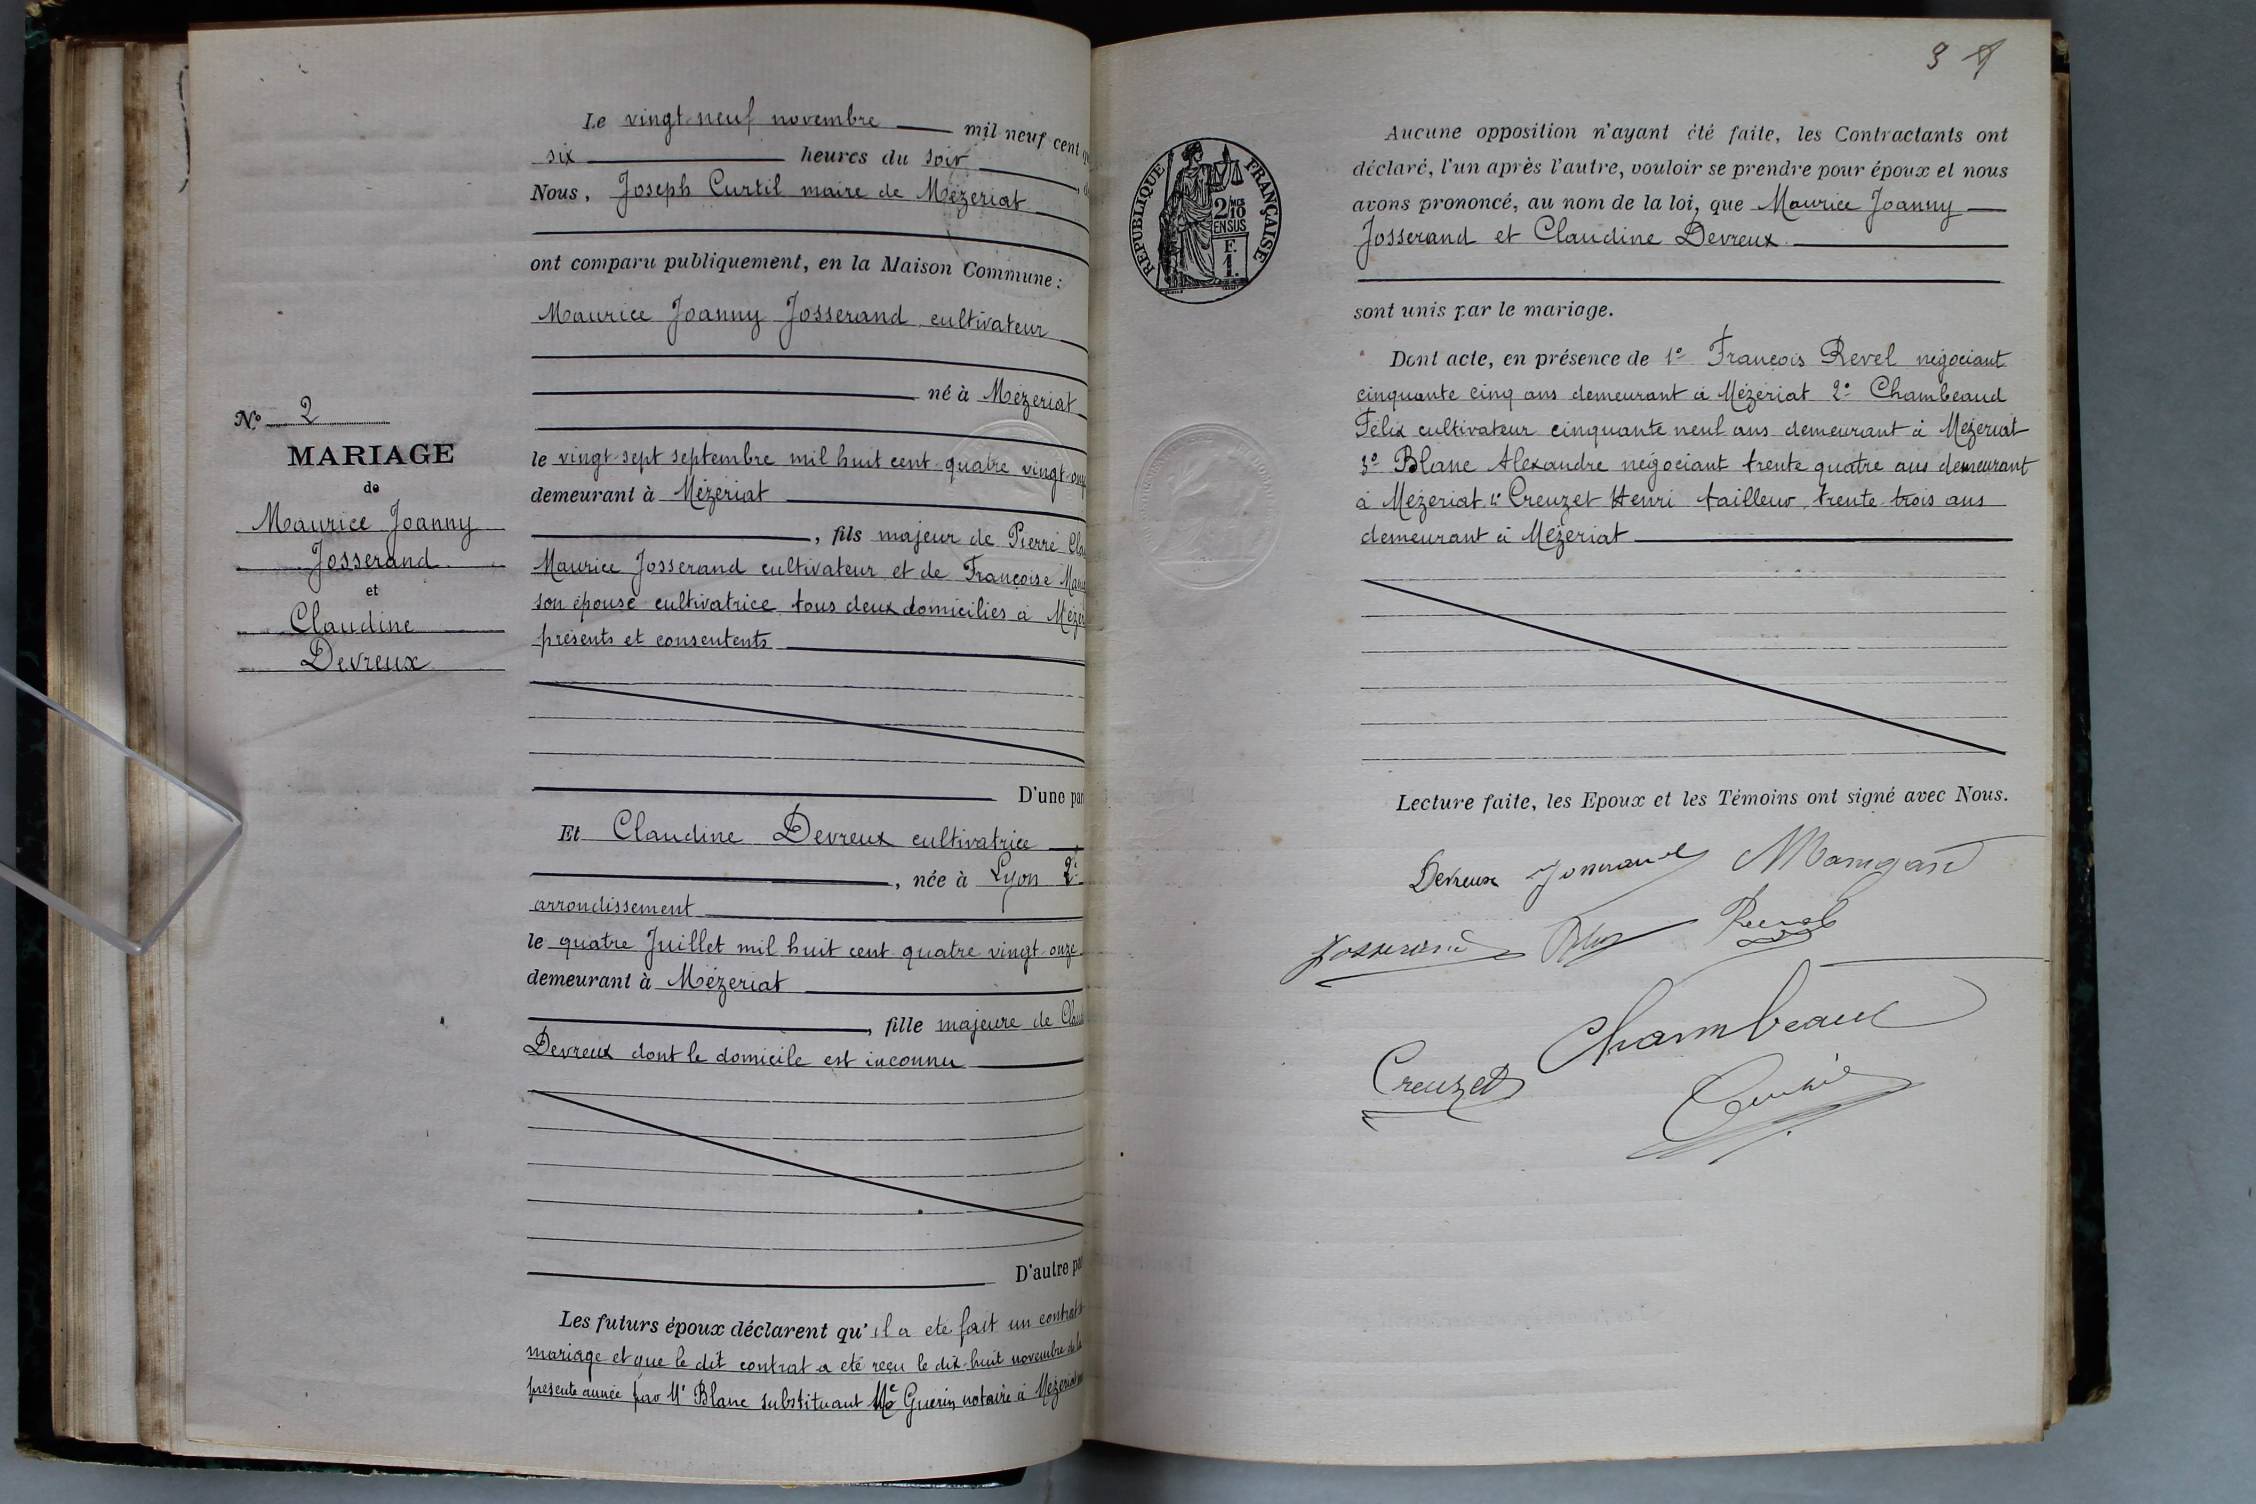 Le vingt-neuf novembre mil neuf cent
six heures du soir
Nous, Joseph Curtil maire de Mézeriat
ont comparu publiquement, en la Maison Commune :
Maurice Joanny Josserand cultivateur
né à Mézeriat
le vingt-sept septembre mil huit cent quatre vingt
demeurant à Mézeriat
, fils majeur de Pierre
Maurice Josserand cultivateur et de Françoise
son épouse cultivatrice tous deux domiciliés à
présents et consentents
D'une
Et Claudine Devreux cultivatrice
, née à Lyon 2e
arrondissement
le quatre Juillet mil huit cent quatre vingt onze
demeurant à Mézeriat
, fille majeure de
Devreux dont le domicile est inconnu
D'autre
Les futurs époux déclarent qu'il a été fait un contrat
mariage et que le dit contrat a été reçu le dix-huit novembre de la
présente année par Me Blanc substituant Me Guerin notaire à Mézeriat
No 2
MARIAGE
de
Maurice Joanny
Josserand
et
Claudine
Devreux
RÉPUBLIQUE FRANÇAISE
2/10
EN SUS
F.
1.
Aucune opposition n'ayant été faite, les Contractants ont
déclaré, l'un après l'autre, vouloir se prendre pour époux et nous
avons prononcé, au nom de la loi, que Maurice Joanny
Josserand et Claudine Devreux
sont unis par le mariage.
Dont acte, en présence de 1o François Revel négociant
cinquante cinq ans demeurant à Mézériat 2o Chambeaud
Félix cultivateur cinquante neuf ans demeurant à Mézeriat
3o Blanc Alexandre négociant trente quatre ans demeurant
à Mézeriat 4o Creuzet Henri tailleur trente-trois ans
demeurant à Mézeriat
Lecture faite, les Epoux et les Témoins ont signé avec Nous.
Devreux Josserand
Josserand Revel
Chambeaud
Creuzet